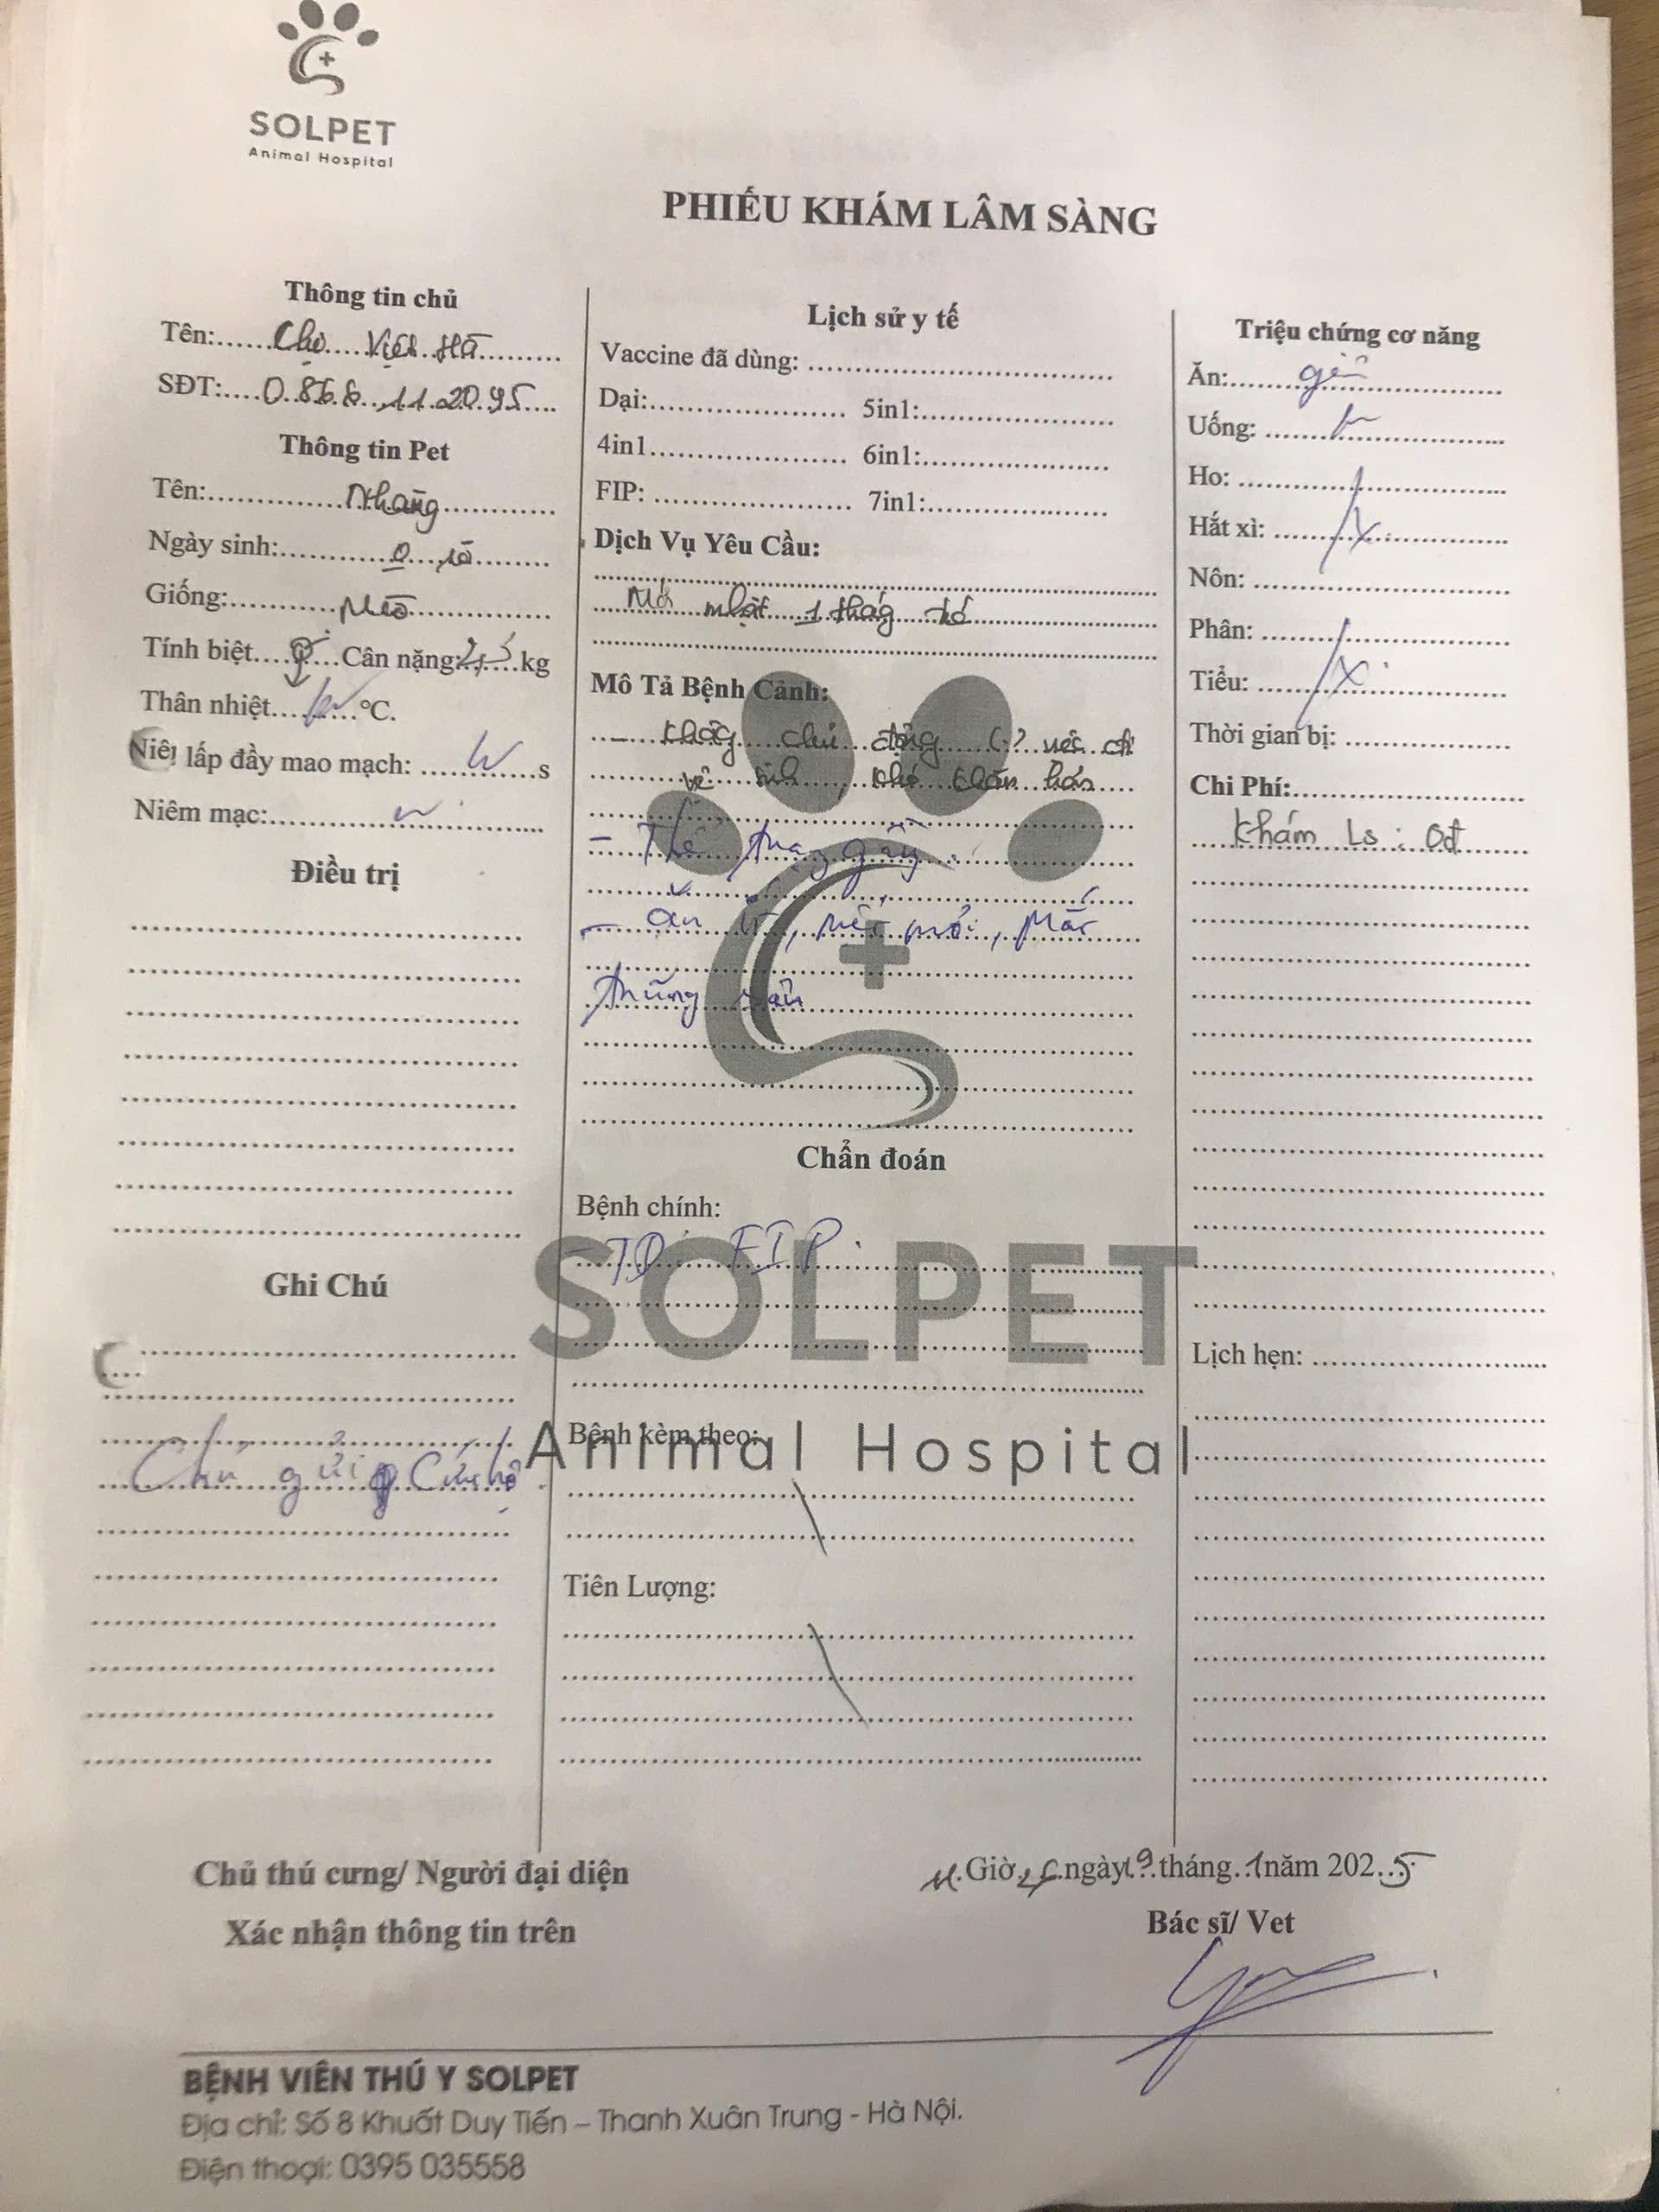 SOLPET
Animal Hospital
PHIẾU KHÁM LÂM SÀNG
Thông tin chủ
Tên:......Chị.....Việt Hà.........
SĐT:....0.86.8...11.2095....
Thông tin Pet
Tên:..............Nhang............
Ngày sinh:............0 rõ.........
Giống:............Mèo..............
Tính biệt....♀....Cân nặng:2,3.kg
Thân nhiệt..........°C.
lấp đầy mao mạch: ..............s
Niêm mạc:..............................
Điều trị
Ghi Chú
Chủ gửi Cứu hộ.
Lịch sử y tế
Vaccine đã dùng: ......................................
Dại:........................ 5in1:........................
4in1........................ 6in1:........................
FIP: ........................ 7in1:........................
Dịch Vụ Yêu Cầu:
Mới nhặt 1 tháng
Mô Tả Bệnh Cảnh:
- không chủ động việc đi
vệ sinh, khó khăn hơn
- Thể trạng gầy.
- ăn ít, mệt mỏi, Mắt
Chẩn đoán
Bệnh chính:
TD: FIP.
SOLPET
Animal Hospital
Bệnh kèm theo:
Tiên Lượng:
Triệu chứng cơ năng
Ăn:..................................
Uống: ..............................
Ho: ..................................
Hắt xì: ..............................
Nôn: ................................
Phân: ...............................
Tiểu: ................................
Thời gian bị: .....................
Chi Phí:.............................
Khám Ls : 0đ
Lịch hẹn: .............................
Giờ ngày19.tháng..1năm 202..5
Chủ thú cưng/ Người đại diện
Xác nhận thông tin trên
Bác sĩ/ Vet
BỆNH VIỆN THÚ Y SOLPET
Địa chỉ: Số 8 Khuất Duy Tiến – Thanh Xuân Trung - Hà Nội.
Điện thoại: 0395 035558